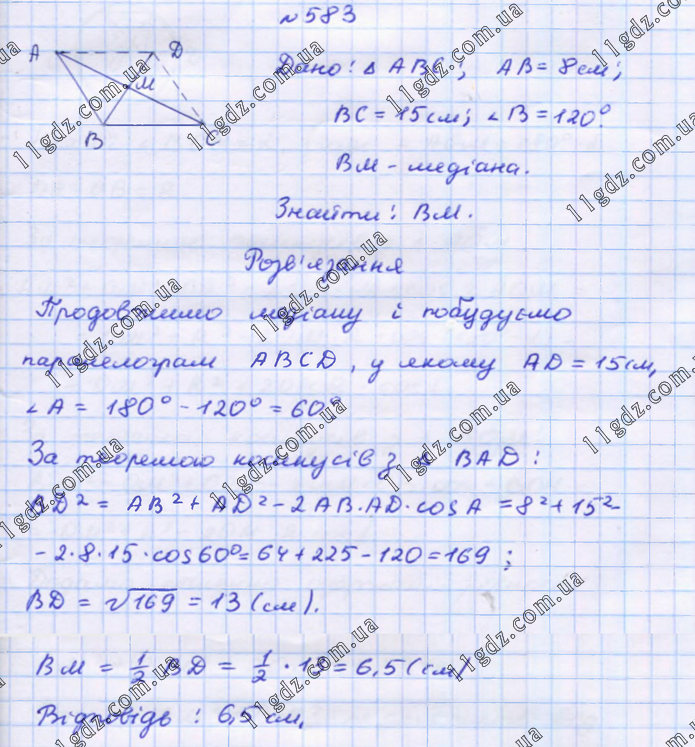 № 583
A D
M
B C
Дано: △ ABC; AB = 8 см;
BC = 15 см; ∠B = 120°.
BM - медіана.
Знайти: BM.
Розв'язання
Продовжимо медіану і побудуємо
паралелограм ABCD, у якому AD = 15 см,
∠A = 180° - 120° = 60°.
За теоремою косинусів з △ BAD:
BD² = AB² + AD² - 2AB·AD·cosA = 8² + 15² -
- 2·8·15·cos60° = 64 + 225 - 120 = 169;
BD = √169 = 13 (см).
BM = 1/2 BD = 1/2 · 13 = 6,5 (см)
Відповідь: 6,5 см.
11gdz.com.ua